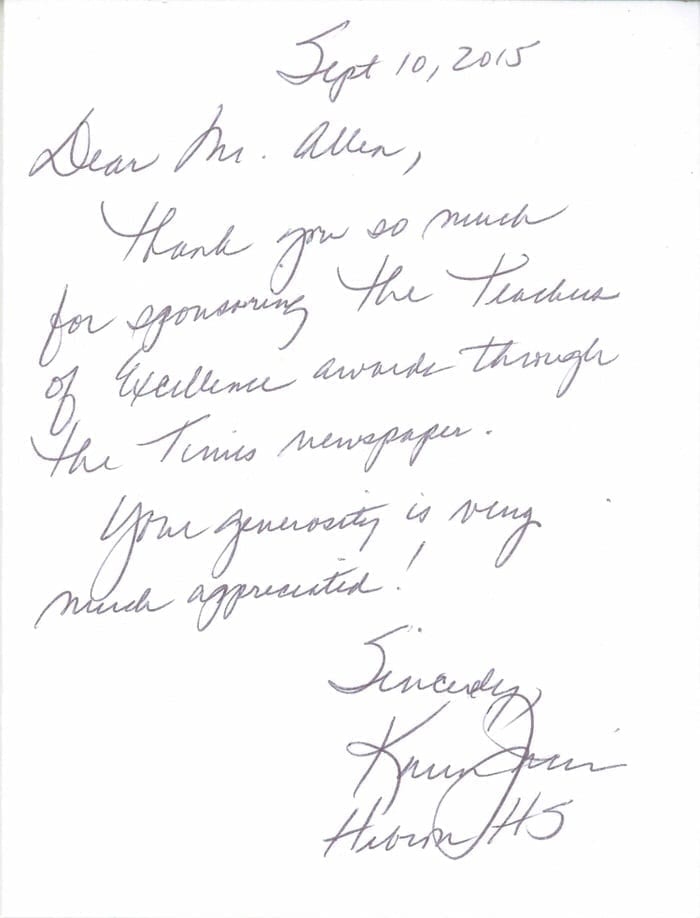 Sept 10, 2015
Dear Mr. Allen,
Thank you so much
for sponsoring the Teachers
of Excellence awards through
the Times newspaper.
Your generosity is very
much appreciated!
Sincerely,
Karen
Hebron HS